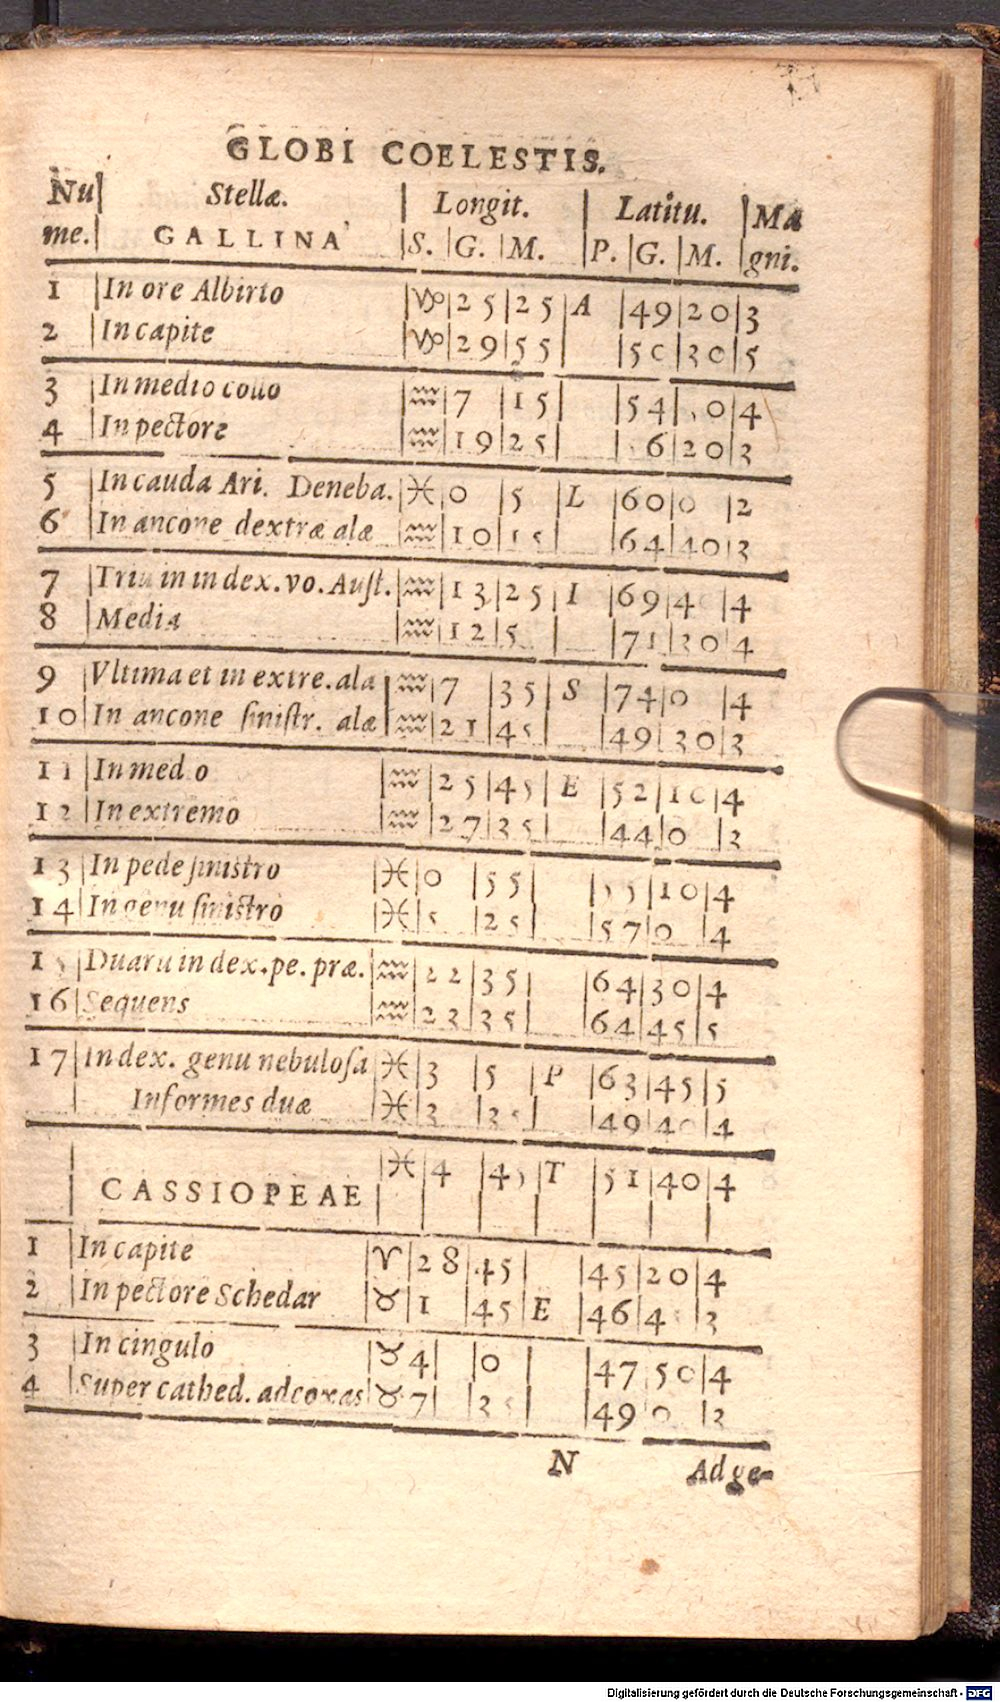 GLOBI COELESTIS.
Nu Stellæ. Longit. Latitu. Ma
me. GALLINA S. G. M. P. G. M. gni.
1 In ore Albirto ♑ 25 25 A 49 20 3
2 In capite ♑ 29 55 50 30 5
3 In medio collo ♒ 7 15 54 0 4
4 In pectore ♒ 19 25 6 20 3
5 In cauda Ari. Deneba. ♓ 0 5 L 60 0 2
6 In ancone dextræ alæ ♒ 10 15 64 40 3
7 Triu in in dex. vo. Aust. ♒ 13 25 I 69 4 4
8 Media ♒ 12 5 71 30 4
9 Vltima et in extre. ala ♒ 7 35 S 74 0 4
10 In ancone sinistr. alæ ♒ 21 45 49 30 3
11 In med o ♒ 25 45 E 52 10 4
12 In extremo ♒ 27 35 44 0 3
13 In pede sinistro ♓ 0 55 55 10 4
14 In genu sinistro ♓ 5 25 57 0 4
15 Duaru in dex. pe. præ. ♒ 22 35 64 30 4
16 Sequens ♒ 23 35 64 45 5
17 In dex. genu nebulosa ♓ 3 5 P 63 45 5
Informes duæ ♓ 3 35 49 40 4
♓ 4 45 T 51 40 4
CASSIOPEAE
1 In capite ♈ 28 45 45 20 4
2 In pectore Schedar ♉ 1 45 E 46 4 3
3 In cingulo ♉ 4 0 47 50 4
4 Super cathed. ad coxas ♉ 7 3 49 0 3
N Adge-
Digitalisierung gefördert durch die Deutsche Forschungsgemeinschaft - DFG